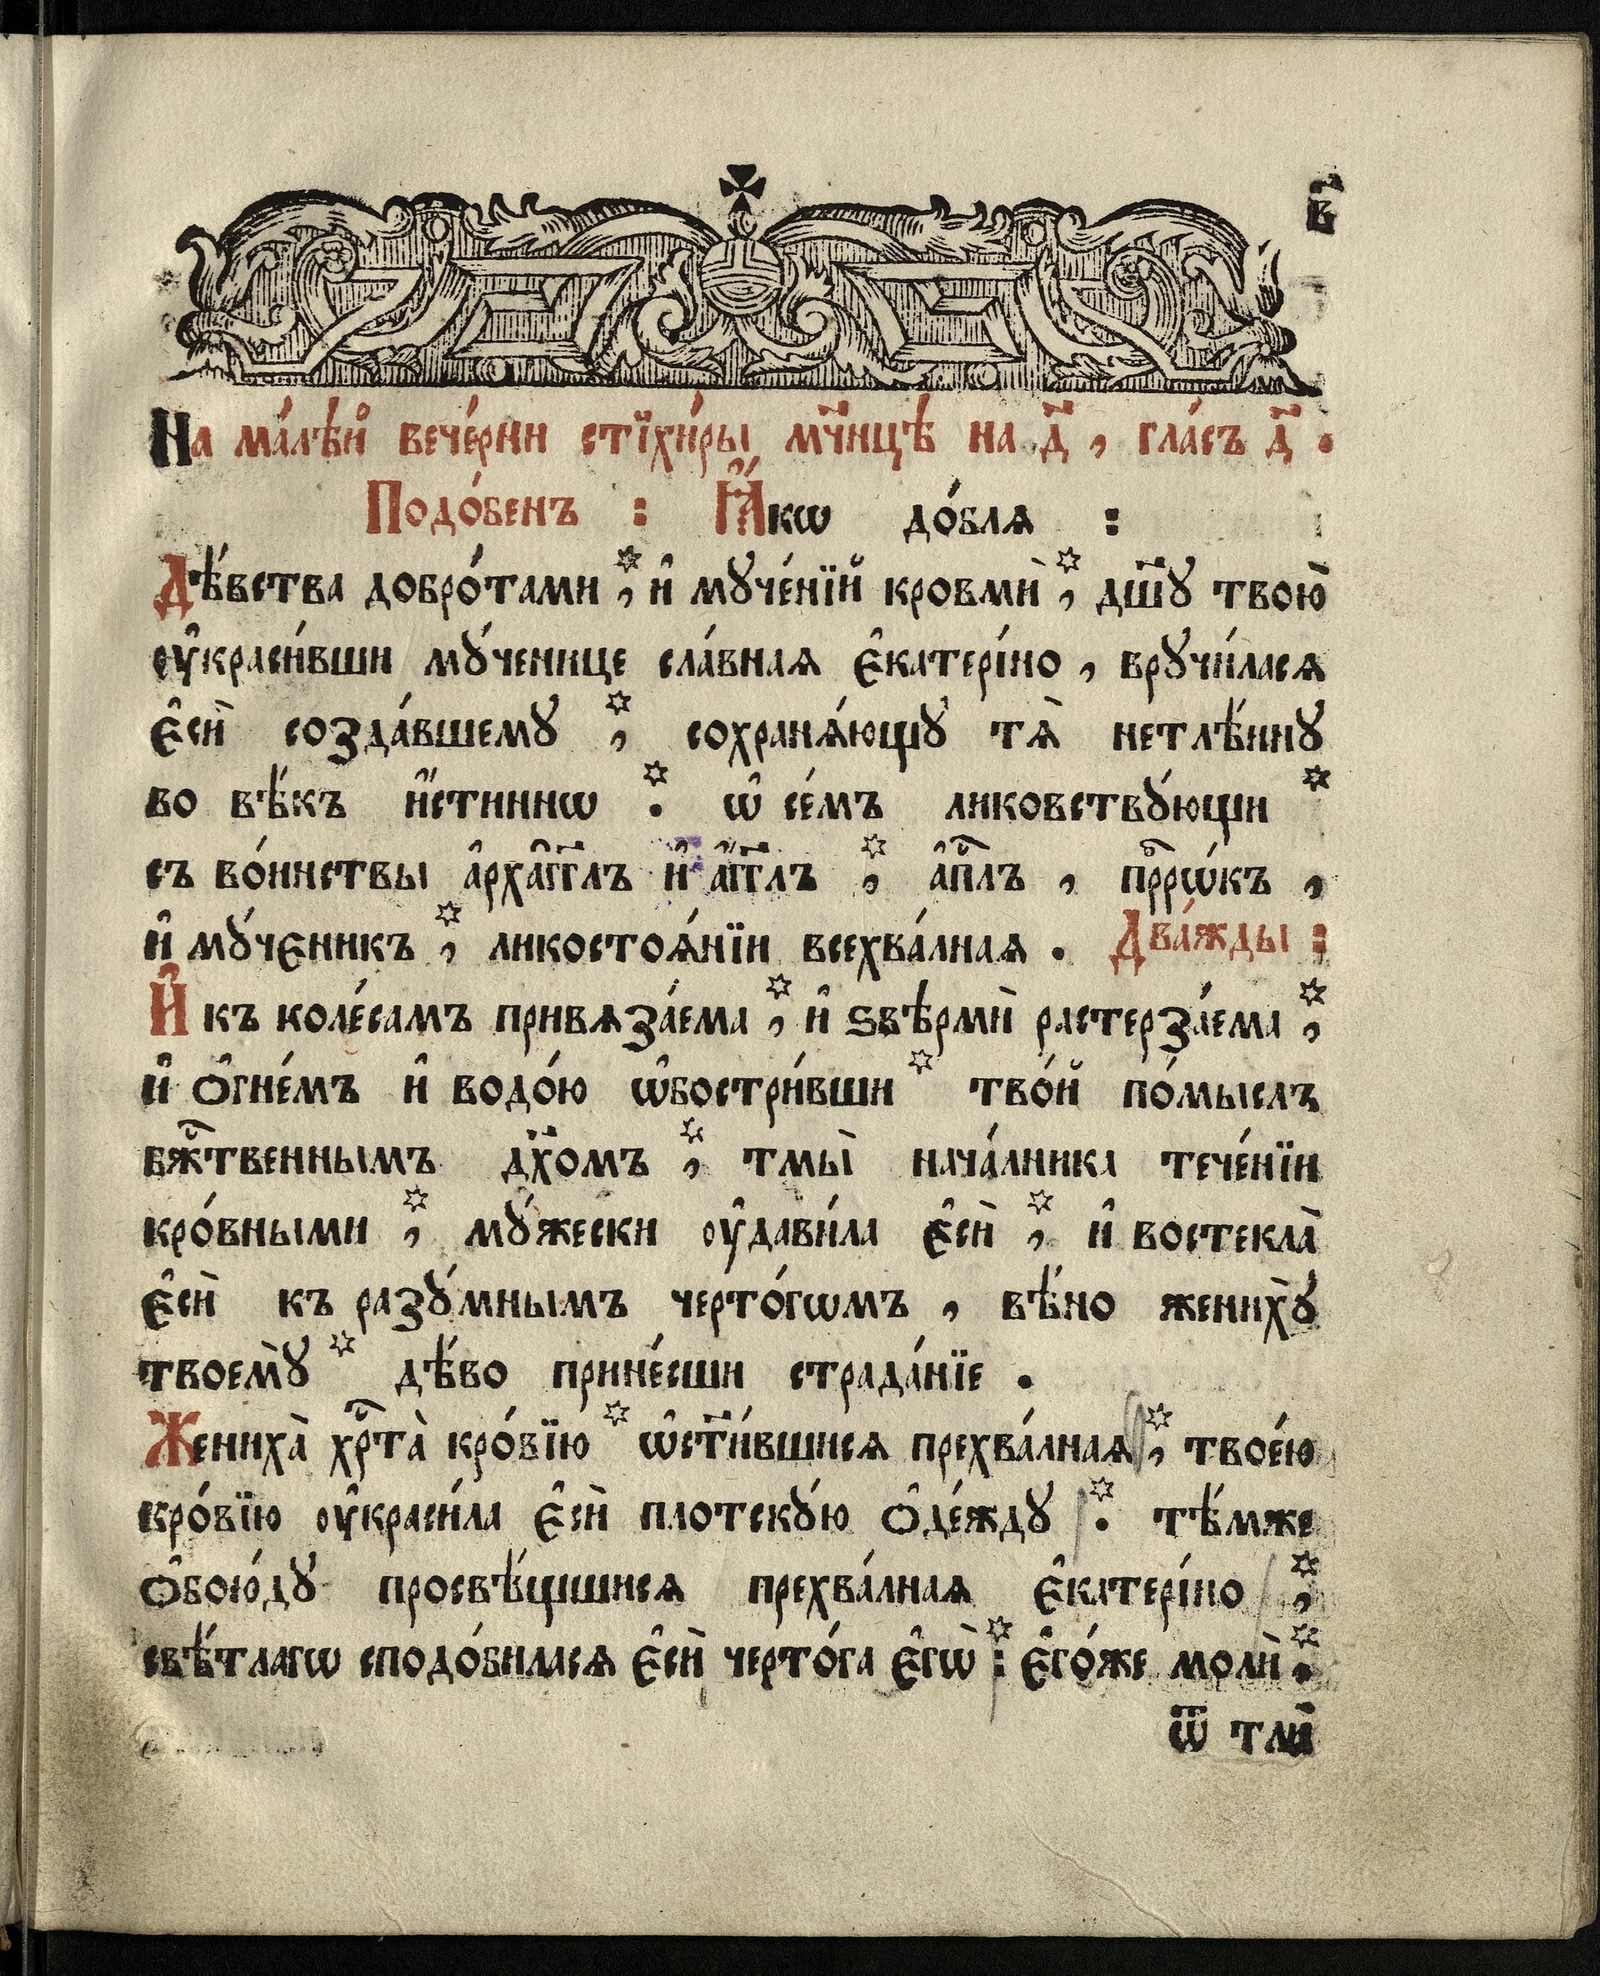 в҃
На ма́лѣй вече́рни стїхи́ры мч҃ицѣ на д҃, гла́съ д҃.
Подо́бенъ : Ꙗ҆́кѡ до́блѧ :
Дѣ́вства добро́тами ⁎, и҆ мꙋче́нїй кровмѝ ⁎, дш҃ꙋ твою̀
ᲂу҆краси́вши мꙋ́ченице сла́внаѧ є҆катері́но, врꙋчи́ласѧ
є҆сѝ созда́вшемꙋ ⁎, сохранѧ́ющꙋ тѧ̀ нетлѣ́ннꙋ
во вѣ́къ и҆́стиннѡ ⁎. ѡ҆ се́мъ ликовствꙋ́ющи ⁎
съ во́инствы а҆рха҆гг҃лъ и҆ а҆́гг҃лъ ⁎, а҆пⷭ҇лъ, прⷪ҇рѡ́къ,
и҆ мꙋ́чєникъ ⁎, ликостоѧ́нїи всехва́лнаѧ. Два́жды :
И҆ къ коле́самъ привѧза́ема ⁎, и҆ ѕвѣрмѝ растерза́ема ⁎,
и҆ ѻ҆гне́мъ и҆ водо́ю ѡ҆бостри́вши ⁎ тво́й по́мыслъ
бжⷭ҇твеннымъ дх҃омъ ⁎, тмы̀ нача́лника тече́нїи
кро́вными ⁎, мꙋ́жески ᲂу҆дави́ла є҆сѝ ⁎, и҆ востекла̀
є҆сѝ къ разꙋ́мнымъ черто́гѡмъ, вѣ́но женихꙋ̀
твоемꙋ̀ ⁎ дѣ́во прине́сши страда́нїе.
Жениха̀ хрⷭ҇та̀ кро́вїю ⁎ ѡ҆ст҃и́вшисѧ прехва́лнаѧ ⁎, твое́ю
кро́вїю ᲂу҆краси́ла є҆сѝ плотскꙋ́ю ѻ҆де́ждꙋ ⁎. тѣ́мже
ѻ҆бою́дꙋ просвѣ́щшисѧ прехва́лнаѧ є҆катері́но ⁎,
свѣ́тлагѡ сподо́биласѧ є҆сѝ черто́га є҆гѡ̀ ⁎: є҆го́же молѝ ⁎.
ѿ тлѝ